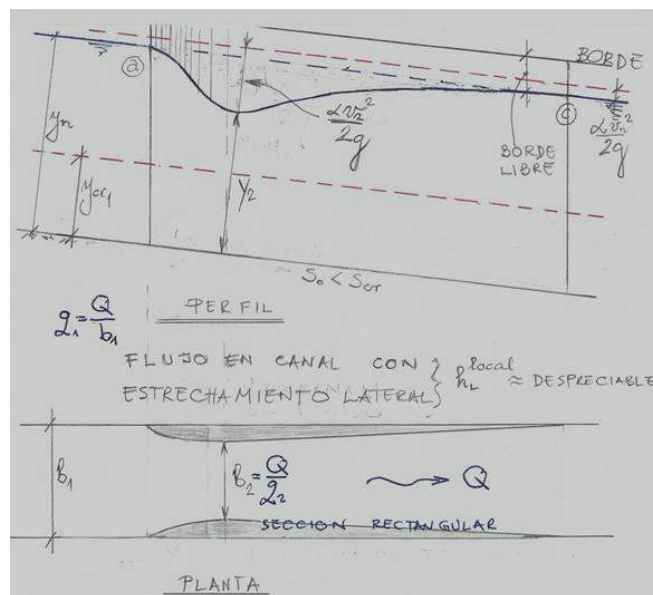 BORDE
a
αv₂²/2g
c
αvₙ²/2g
yₙ
BORDE
LIBRE
y_cr1
Y₂
S₀ < Scr
PERFIL
q₁ = Q/b₁
FLUJO EN CANAL CON
ESTRECHAMIENTO LATERAL } h_L^local ≈ DESPRECIABLE
B₁
B₂ = Q/q₂
Q
SECCION RECTANGULAR
PLANTA